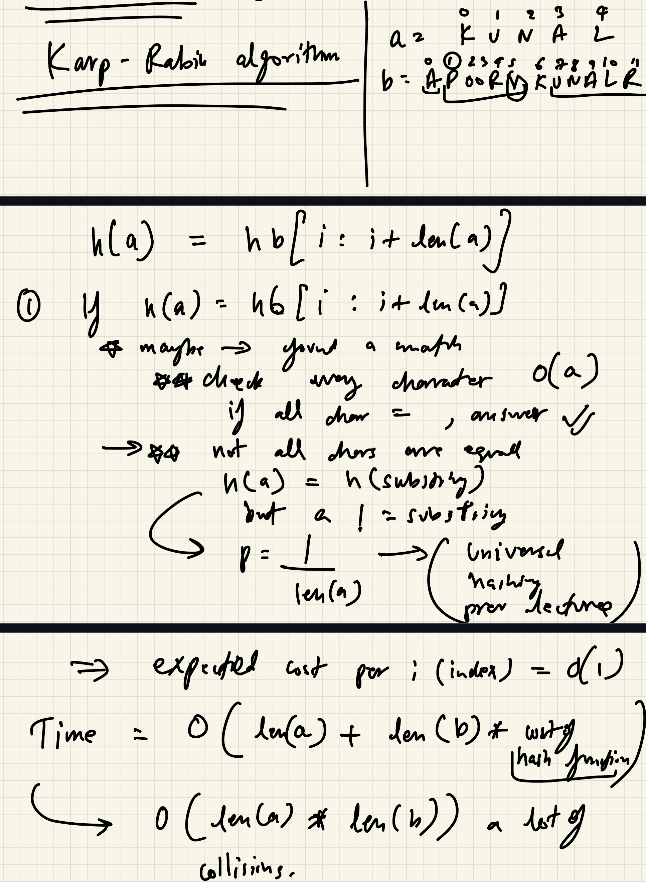 Karp-Rabin algorithm
0 1 2 3 4
a = K U N A L
0 1 2 3 4 5 6 7 8 9 10 11
b = A P O O R V K U N A L R
h(a) = h b[i : i + len(a)]
① If h(a) = hb[i : i + len(a)]
☆ maybe → found a match
☆☆ check every character O(a)
if all char = , answer ✓✓
→ ☆☆ not all chars are equal
h(a) = h(substring)
but a != substring
p = 1 / len(a) → (universal
hashing
prev lectures)
⇒ expected cost per i (index) = O(1)
Time = O(len(a) + len(b) * cost of
hash function)
O(len(a) * len(b)) a lot of
collisions.